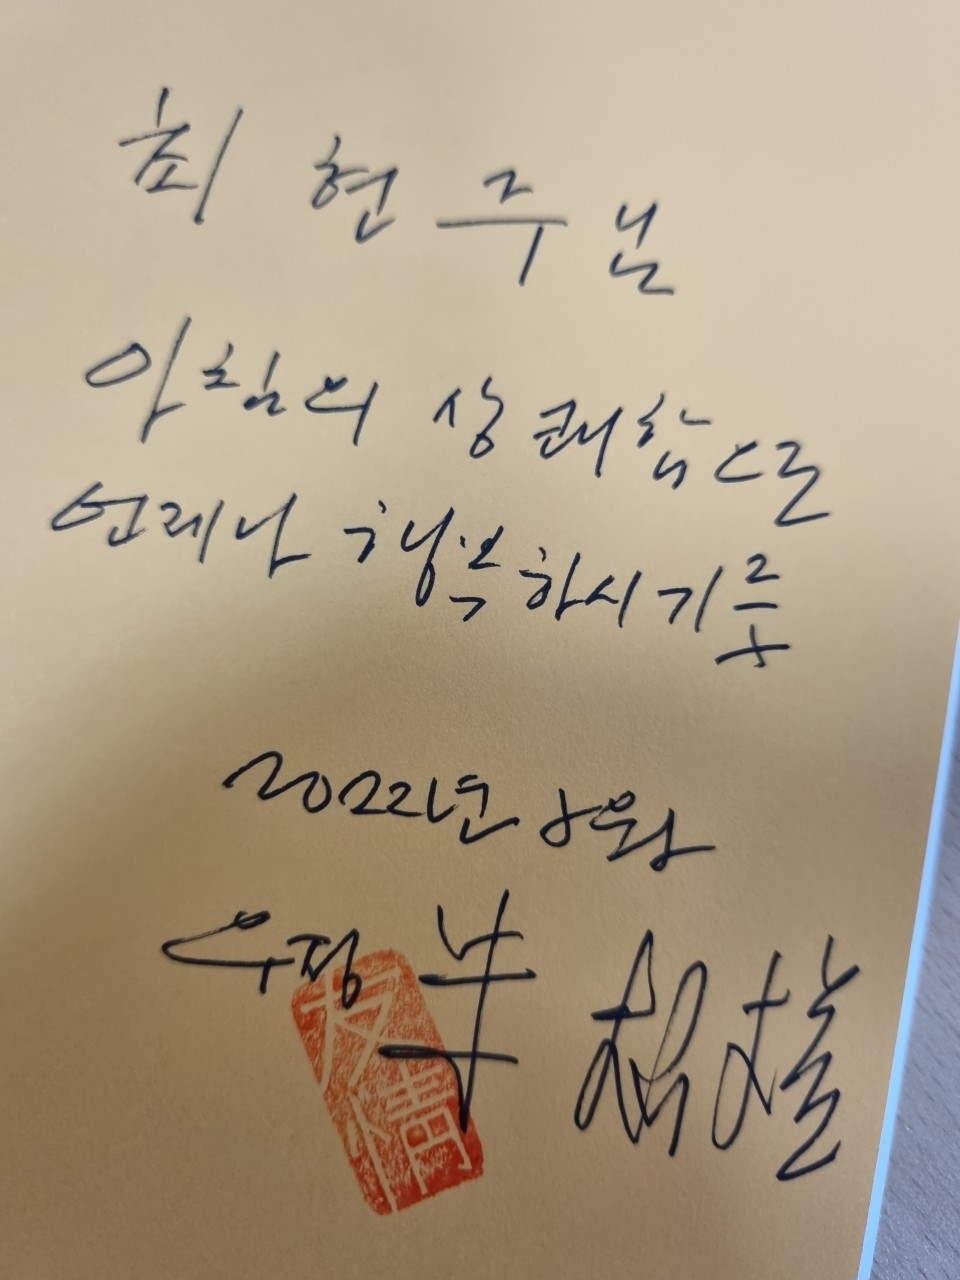 최현주님
아침의 상쾌함으로
언제나 행복하시기를
2022년 8월
우정
友情